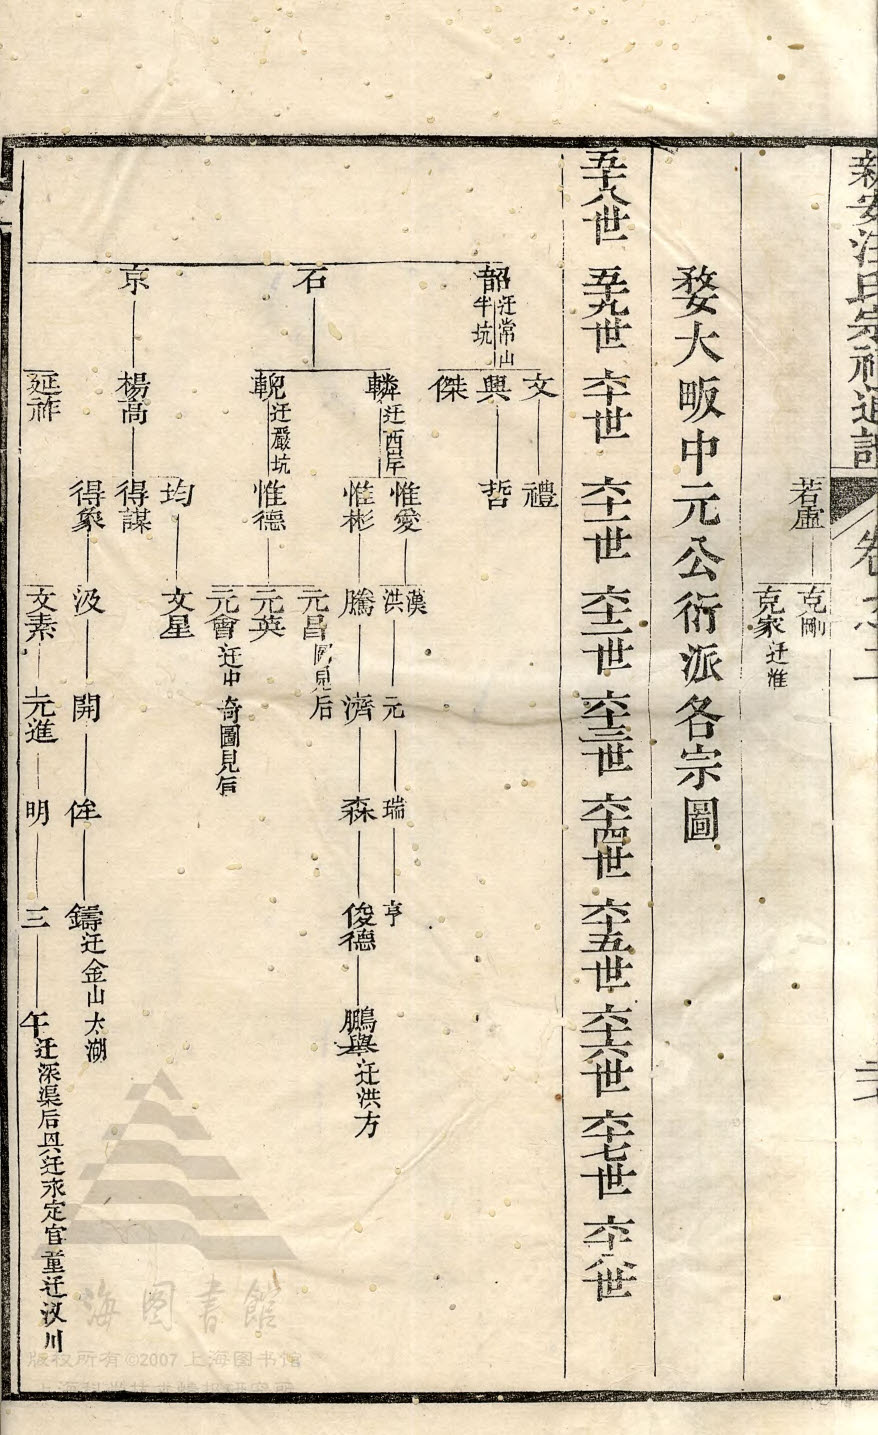 新安汪氏宗祠通譜
卷之二
若虛
克剛
克家 迁淮
婺大畈中元公衍派各宗圖
五十八世 五十九世 六十世 六十一世 六十二世 六十三世 六十四世 六十五世 六十六世 六十七世 六十八世
韶 迁常山半坑
文 禮
興 哲
傑
石
轔 迁西岸
惟愛
漢
洪 元 瑞 亨
惟彬 騰 濟 森 俊德 鵬舉 迁洪方
輗 迁嚴坑
惟德
元昌 見后
元英
元會 迁中 圖見后
京
楊高
均 文星
得謀
得象 汲 開 侔 鑄 迁金山太湖
延祚
文素 元進 明 三 午 迁深渠后 迁永定官 迁汉川
海图書館
版权所有©2007 上海图书馆